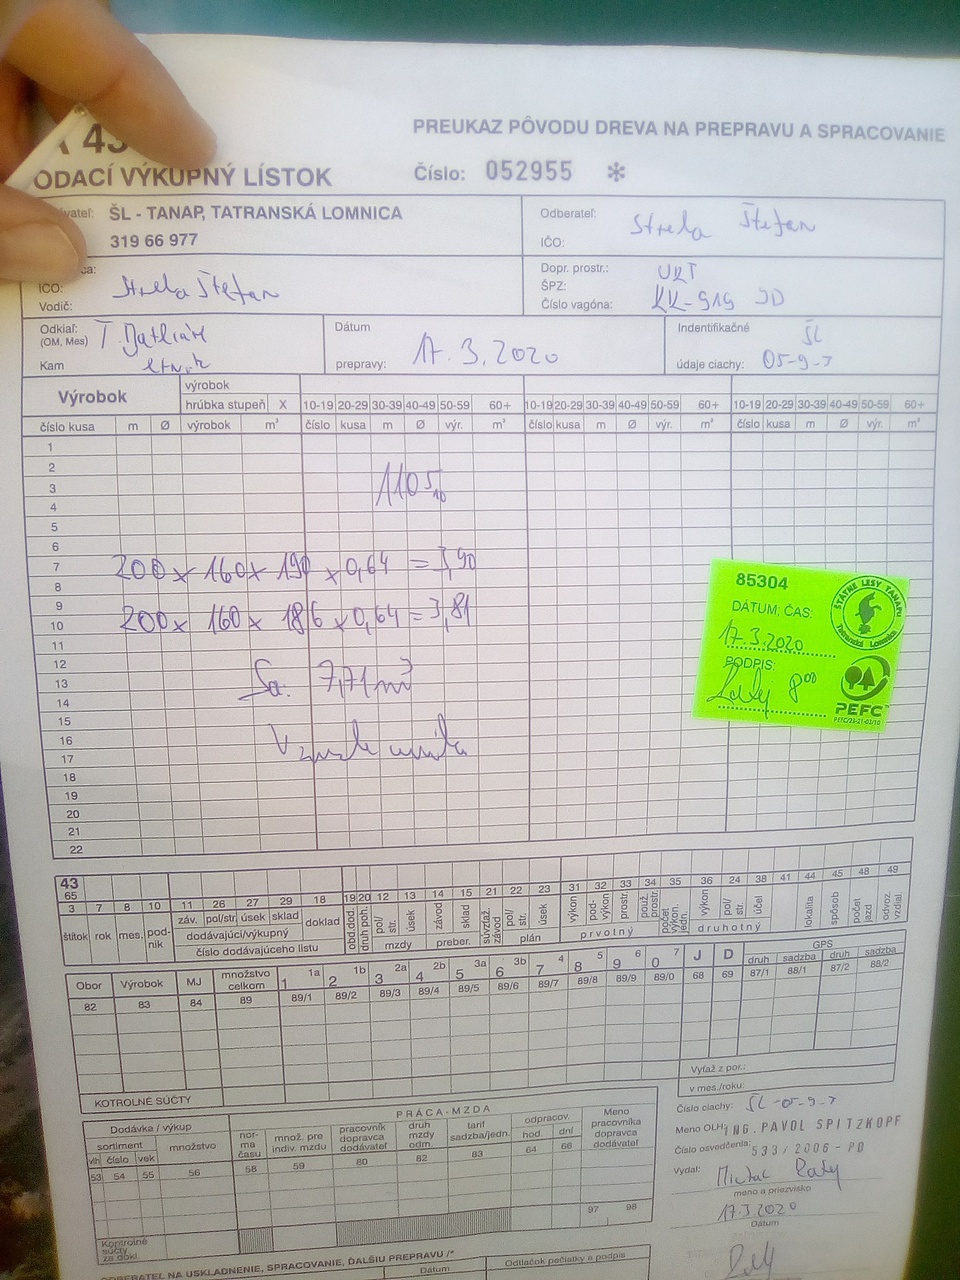 PREUKAZ PÔVODU DREVA NA PREPRAVU A SPRACOVANIE
ODACÍ VÝKUPNÝ LÍSTOK Číslo: 052955 *
ŠL - TANAP, TATRANSKÁ LOMNICA
319 66 977
Odberateľ: Strela Štefan
IČO:
IČO: Strela Štefan
Vodič:
Dopr. prostr.: UKT
ŠPZ: KK-919 SD
Číslo vagóna:
Odkiaľ: T.
(OM, Mes)
Kam
Dátum
prepravy: 17.3.2020
Indentifikačné ŠL
údaje ciachy: 05-9-7
Výrobok
výrobok
hrúbka stupeň X 10-19 20-29 30-39 40-49 50-59 60+ 10-19 20-29 30-39 40-49 50-59 60+ 10-19 20-29 30-39 40-49 50-59 60+
číslo kusa m Ø výrobok m³ číslo kusa m Ø výr. m³ číslo kusa m Ø výr. m³ číslo kusa m Ø výr. m³
1
2
3 1105
4
5
6
7 200 x 160 x 190 x 0,64 = 3,90
8
9
10 200 x 160 x 186 x 0,64 = 3,81
11
12
13 Sa: 7,71 m³
14
15
16
17
18
19
20
21
22
85304
DÁTUM: ČAS:
17.3.2020
PODPIS:
8⁰⁰
ŠTÁTNE LESY TANAPU
Tatranská Lomnica
PEFC
43
65
3 7 8 10 11 26 27 29 18 19 20 12 13 14 15 21 22 23 31 32 33 34 35 36 24 38 41 44 45 48 49
štítok rok mes. podnik záv. pol/str. úsek sklad doklad obd.dod. druh poh. pol/str. úsek závod sklad súvzťaž. závod pol/str. úsek výkon podvýkon. prostr. použ. prostr. počet výkon. jedn. výkon pol/str. účel lokalita spôsob počet jazd odvoz. vzdial.
dodávajúci/výkupný
číslo dodávajúceho listu
mzdy preber. plán prvotný druhotný
Obor Výrobok MJ množstvo celkom 1 1a 2 1b 3 2a 4 2b 5 3a 6 3b 7 4 8 5 9 6 0 7 J D GPS
druh sadzba druh sadzba
82 83 84 89 89/1 89/2 89/3 89/4 89/5 89/6 89/7 89/8 89/9 89/0 68 69 87/1 88/1 87/2 88/2
KOTROLNÉ SÚČTY
Vyťaž z por.:
v mes./roku:
Dodávka / výkup
PRÁCA-MZDA
sortiment množstvo norma času množ. pre indiv. mzdu pracovník dopravca dodávateľ druh mzdy odm. tarif sadzba/jedn. odpracov. Meno pracovníka dopravca dodávateľ
vlh číslo vek hod. dní
53 54 55 56 58 59 80 82 83 64 66
97 98
Kontrolné súčty za dokl.
Číslo ciachy: ŠL-05-9-7
Meno OLH: ING. PAVOL SPITZKOPF
Číslo osvedčenia: 533/2006-PO
Vydal:
meno a priezvisko
17.3.2020
Dátum
ODBERATEĽ NA USKLADNENIE, SPRACOVANIE, ĎALŠIU PREPRAVU /*
Dátum
Odtlačok pečiatky a podpis